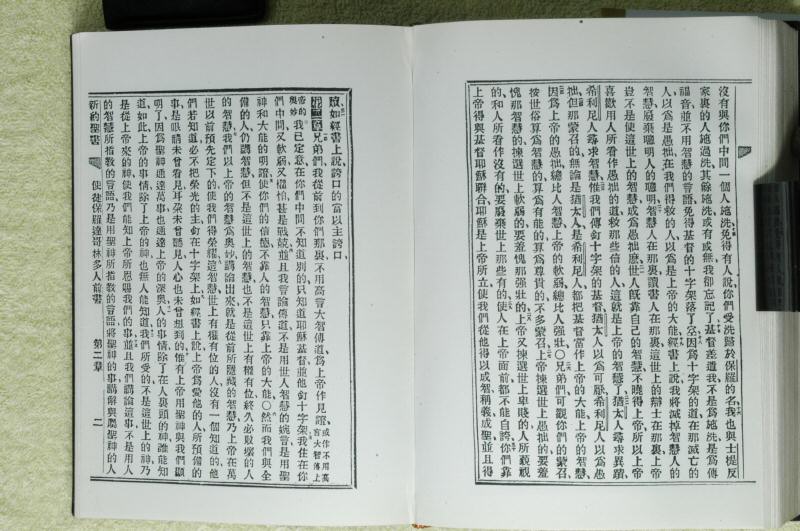 沒有與你們中間一個人施洗、免得有人說、你們受洗歸於保羅的名、我也與士提反
家裏的人施過洗、其餘施洗或有或無、我卻忘記了、基督差遣我、不是爲施洗、是爲傳
福音、並不用智慧的言語、免得基督的十字架落了空、因爲十字架的道、在那滅亡的
人以爲是愚拙、在我們得救的人、以爲是上帝的大能、經書上說、我將滅掉智慧人的
智慧、廢棄聰明人的聰明、智慧人在那裏、讀書人在那裏、這世上的辯士在那裏、上帝
豈不是使這世上的智慧、成爲愚拙麽、世人旣靠自己的智慧、不曉得上帝、所以上帝
喜歡用人所看作愚拙的道、救那些信的人、這就是上帝的智慧了、猶太人尋求異蹟、
希利尼人尋求智慧、惟我們傳釘十字架的基督、猶太人以爲可厭、希利尼人以爲愚
拙、但那蒙召的、無論是猶太人、是希利尼人、都把基督當作上帝的大能、上帝的智慧、
因爲上帝的愚拙、總比人智慧、上帝的軟弱、總比人強壯○兄弟們、可觀你們的蒙召、
按世俗算爲智慧的、算爲有能的、算爲尊貴的、不多蒙召、上帝揀選世上愚拙的、要羞
愧那智慧的、揀選世上軟弱的、要羞愧那強壯的、上帝又揀選世上卑賤的、人所藐視
的、和人所看作沒有的、要廢棄世上那些有的、使人在上帝面前都不能自誇、你們靠
上帝得與基督耶穌聯合、耶穌是上帝所立、使我們從他得以成智、稱義、成聖、並且得
贖、如經書上說、誇口的當以主誇口、
第二章 兄弟們、我從前到你們那裏、不用高言大智傳道、爲上帝作見證、或作不用高言大智傳上
帝的奧妙 我已定意在你們中間不知道別的、只知道耶穌基督、並他釘十字架、我住在你
們中間、又軟弱、又懼怕、甚是戰兢、並且我言論傳道、不是用世人智慧的婉言、是用聖
神和大能的明證、使你們的信德、不靠人的智慧、只靠上帝的大能○然而我們與全
備的人仍講智慧、但不是這世上的智慧、也不是這世上有權有位終久必敗壞的人
的智慧、我們以上帝的智慧爲奧妙、講論出來、就是從前所隱藏的智慧、乃上帝在萬
世以前預先定下的、使我們得榮耀、這智慧世上有權有位的人、沒有一個知道的、他
們若知道、必不把榮光的主釘在十字架上、如經書上說、上帝爲愛他的人所預備的
事、是眼睛未曾看見、耳朶未曾聽見、人心也未曾想到的、惟有上帝用聖神與我們顯
明了、因爲聖神通達萬事、也通達上帝的深奧、人的事情、除了在人裏頭的神、誰能知
道、如此上帝的事情、除了上帝的神、也無人能知道、我們所受的、不是這世上的神、乃
是從上帝來的神、使我們能知上帝所恩賜我們的事、並且我們講論這事、不是用人
的智慧所指敎的言語、乃是用聖神所指敎的言語、將聖神的事、講解與屬聖神的人、
新約聖書 使徒保羅達哥林多人前書 第二章 二